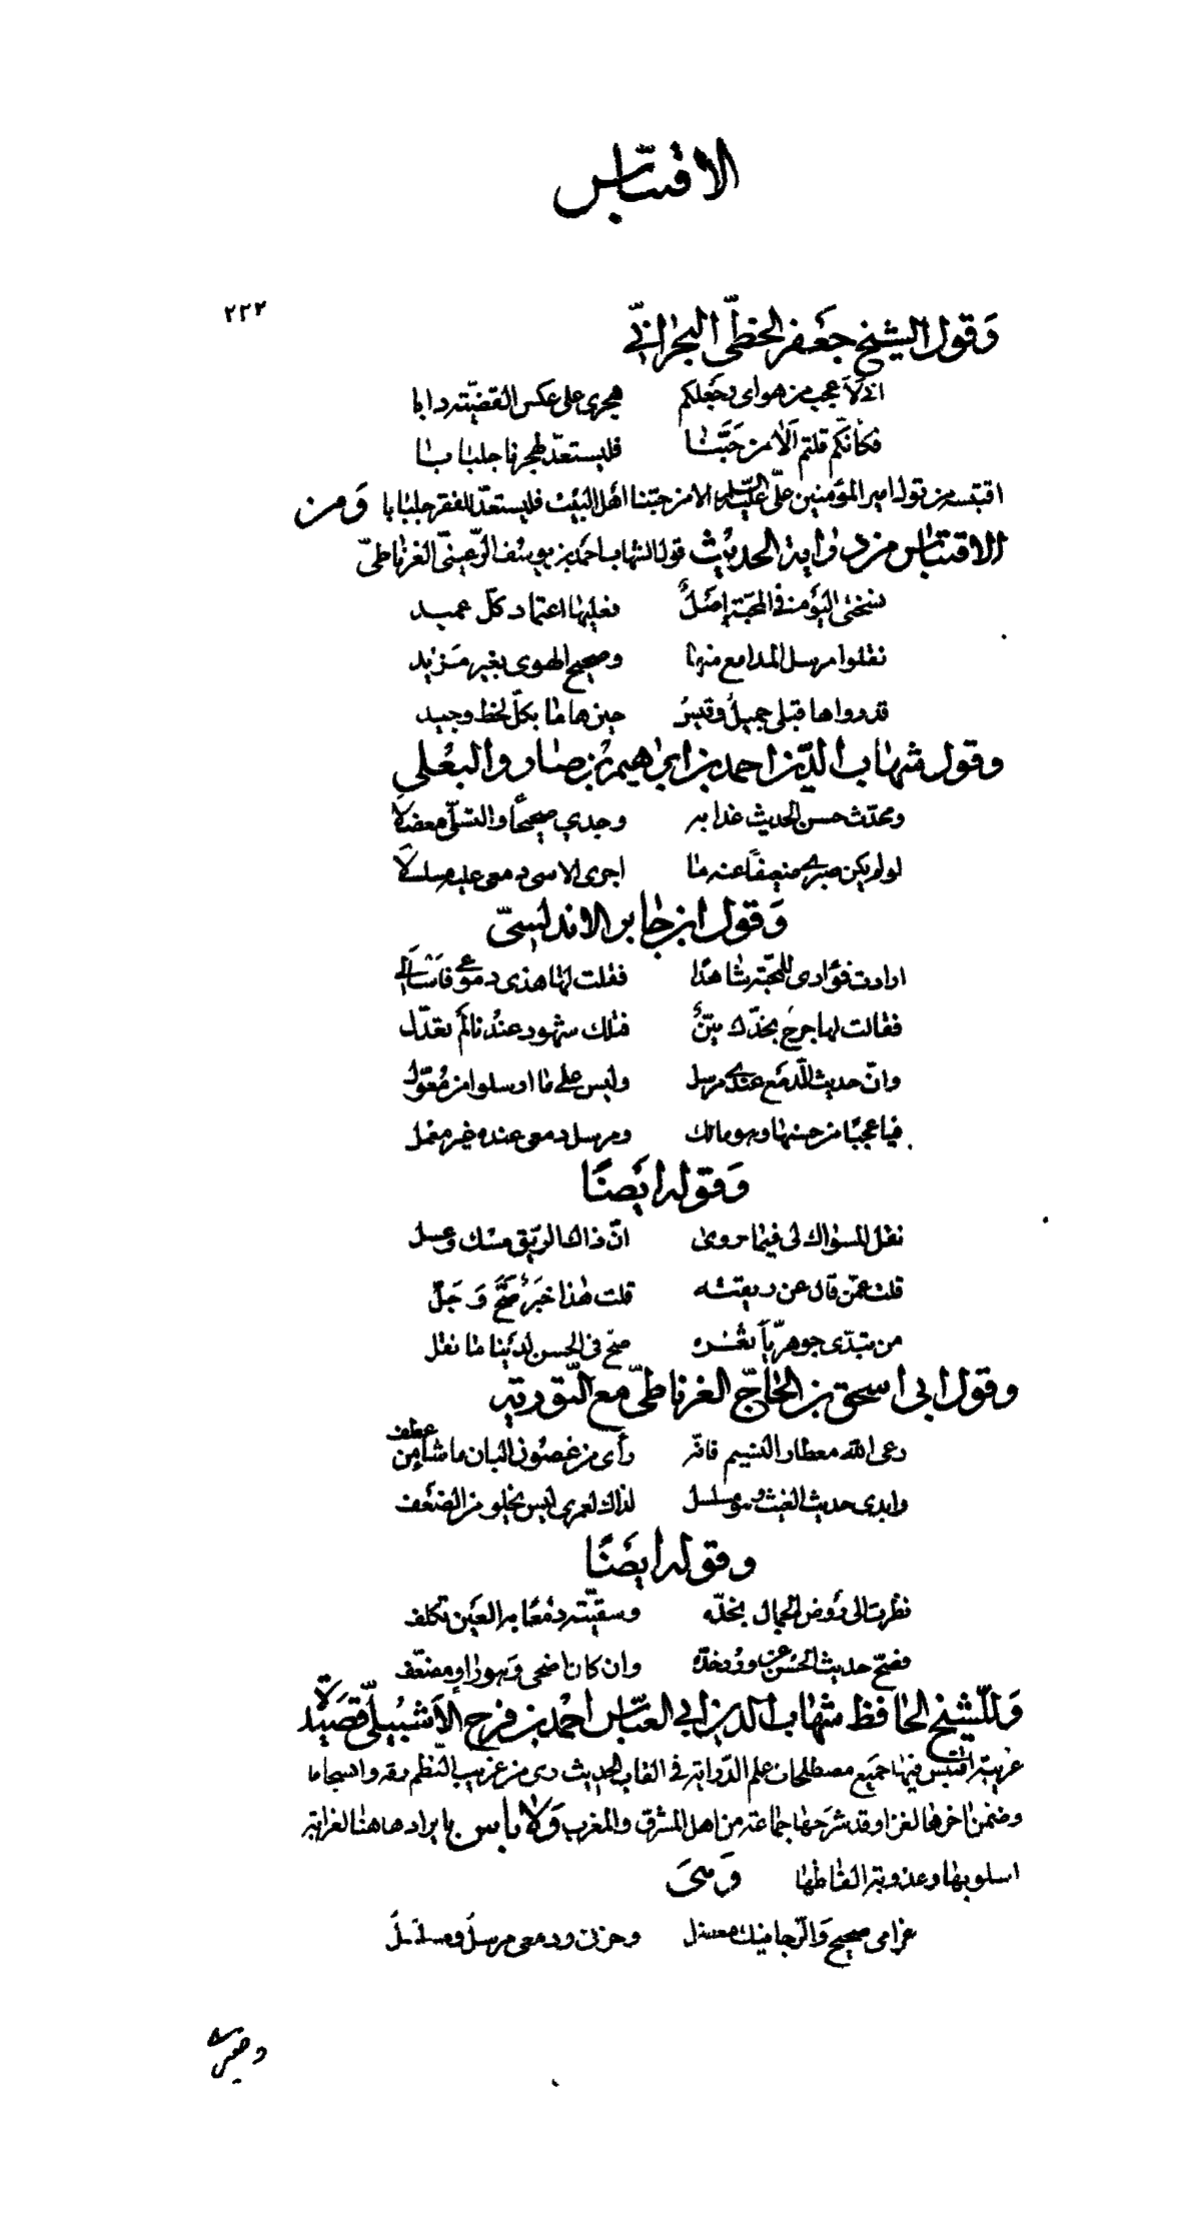 الاقتباس
٢٣٢
وَقول الشيخ جَعفر الخطّي البحرانيّ
انّي لَاَعجب من هواى وجَعلكم هجرى على عكس القضيّة دابا
فكأنّكم قلتم اَلا من حَبَّنا فليستعدّ لهجرنا جلبابا
اقتبسه من قول امير المؤمنين علىّ عليه السّلم الا من حبّنا اهل البيت فليستعدّ للفقر جلبابا وَمن
الاقتباس من دراية الحديث قول الشهاب احمد بن يوسف الرّعينيّ الغرناطيّ
نسختى اليوم فى المحبّة اصَلٌ فعليها اعتماد كلّ عميد
نقلوا مرسل المدامع منها وصحيح الهوى بغير مَزيد
قد رواها قبلى جميلٌ وقيسٌ حين هاما بكلّ لحظ وجيد
وقول شهاب الدّين احمد بن ابراهيم بن صارو البعلى
ومحدّث حسن الحديث غدا به وجدي صحيحًا والتسلّى معضلا
لو لم يكن صبرى ضعيفًا عنه ما اجرى الاسى دمعى عليه مسلسلا
وَقول ابن جابر الاندلسيّ
ارادت فؤادى للمحبّة شاهدًا فقلت لها هذى دموعى فَاَسئلى
فقالت لها جرحٌ بخدّك بيّنٌ فتلك شهود عندنا لم تعدّل
وانّ حديث الدّمع عندى مرسل وليس على ما ارسلوا من مُعَوّل
فيا عجبًا من حسنها وهو مالك ومرسل دمعى عنده غير معمل
وَقوله ايضًا
نقل المسواك لى فيما روى انّ ذاك الريّق مسك وعسل
قلت عمّن قال عن ريقته قلت هٰذا خبرٌ صَحَّ وَجَلّ
من مبتدى جوهريّاً ثغره صحّ فى الحسن لدينا ما نقل
وقول ابى اسحق بن الحاجّ الغرناطيّ مع التّورية
رعى الله معطار النسيم فانّه رأى من غصون البان ما شاء من عطف
وابدى حديث الغيث وهو مسلسل لذاك لعمرى ليس يخلو من الضّعف
وقوله ايضًا
نظرت الى روض الجمال بخدّه وسقيّته دمعًا به العين تكلف
فصحّ حديث الحسن عن ورد خدّه وان كان اضحى وهو راوٍ مضعّف
وَللشّيخ الحافظ شهاب الدين ابى العبّاس احمد بن فرح الاشبيلىّ قصَيدَة
غزلية اقتبس فيها جميع مصطلحات علم الدّراية فى القاب الحديث وى من غريب النّظم رقه وانسجاما
وضمن اخرها لغزا وقد شرحها جماعة من اهل المشرق والمغرب وَلا باس بايرادها هنا لغرابة
اسلوبها وعذوبة الفاظها وَهىَ
غرامى صحيح وَالرّجا فيك معضل وحزنى ودمعى مرسلٌ ومسلسلُ